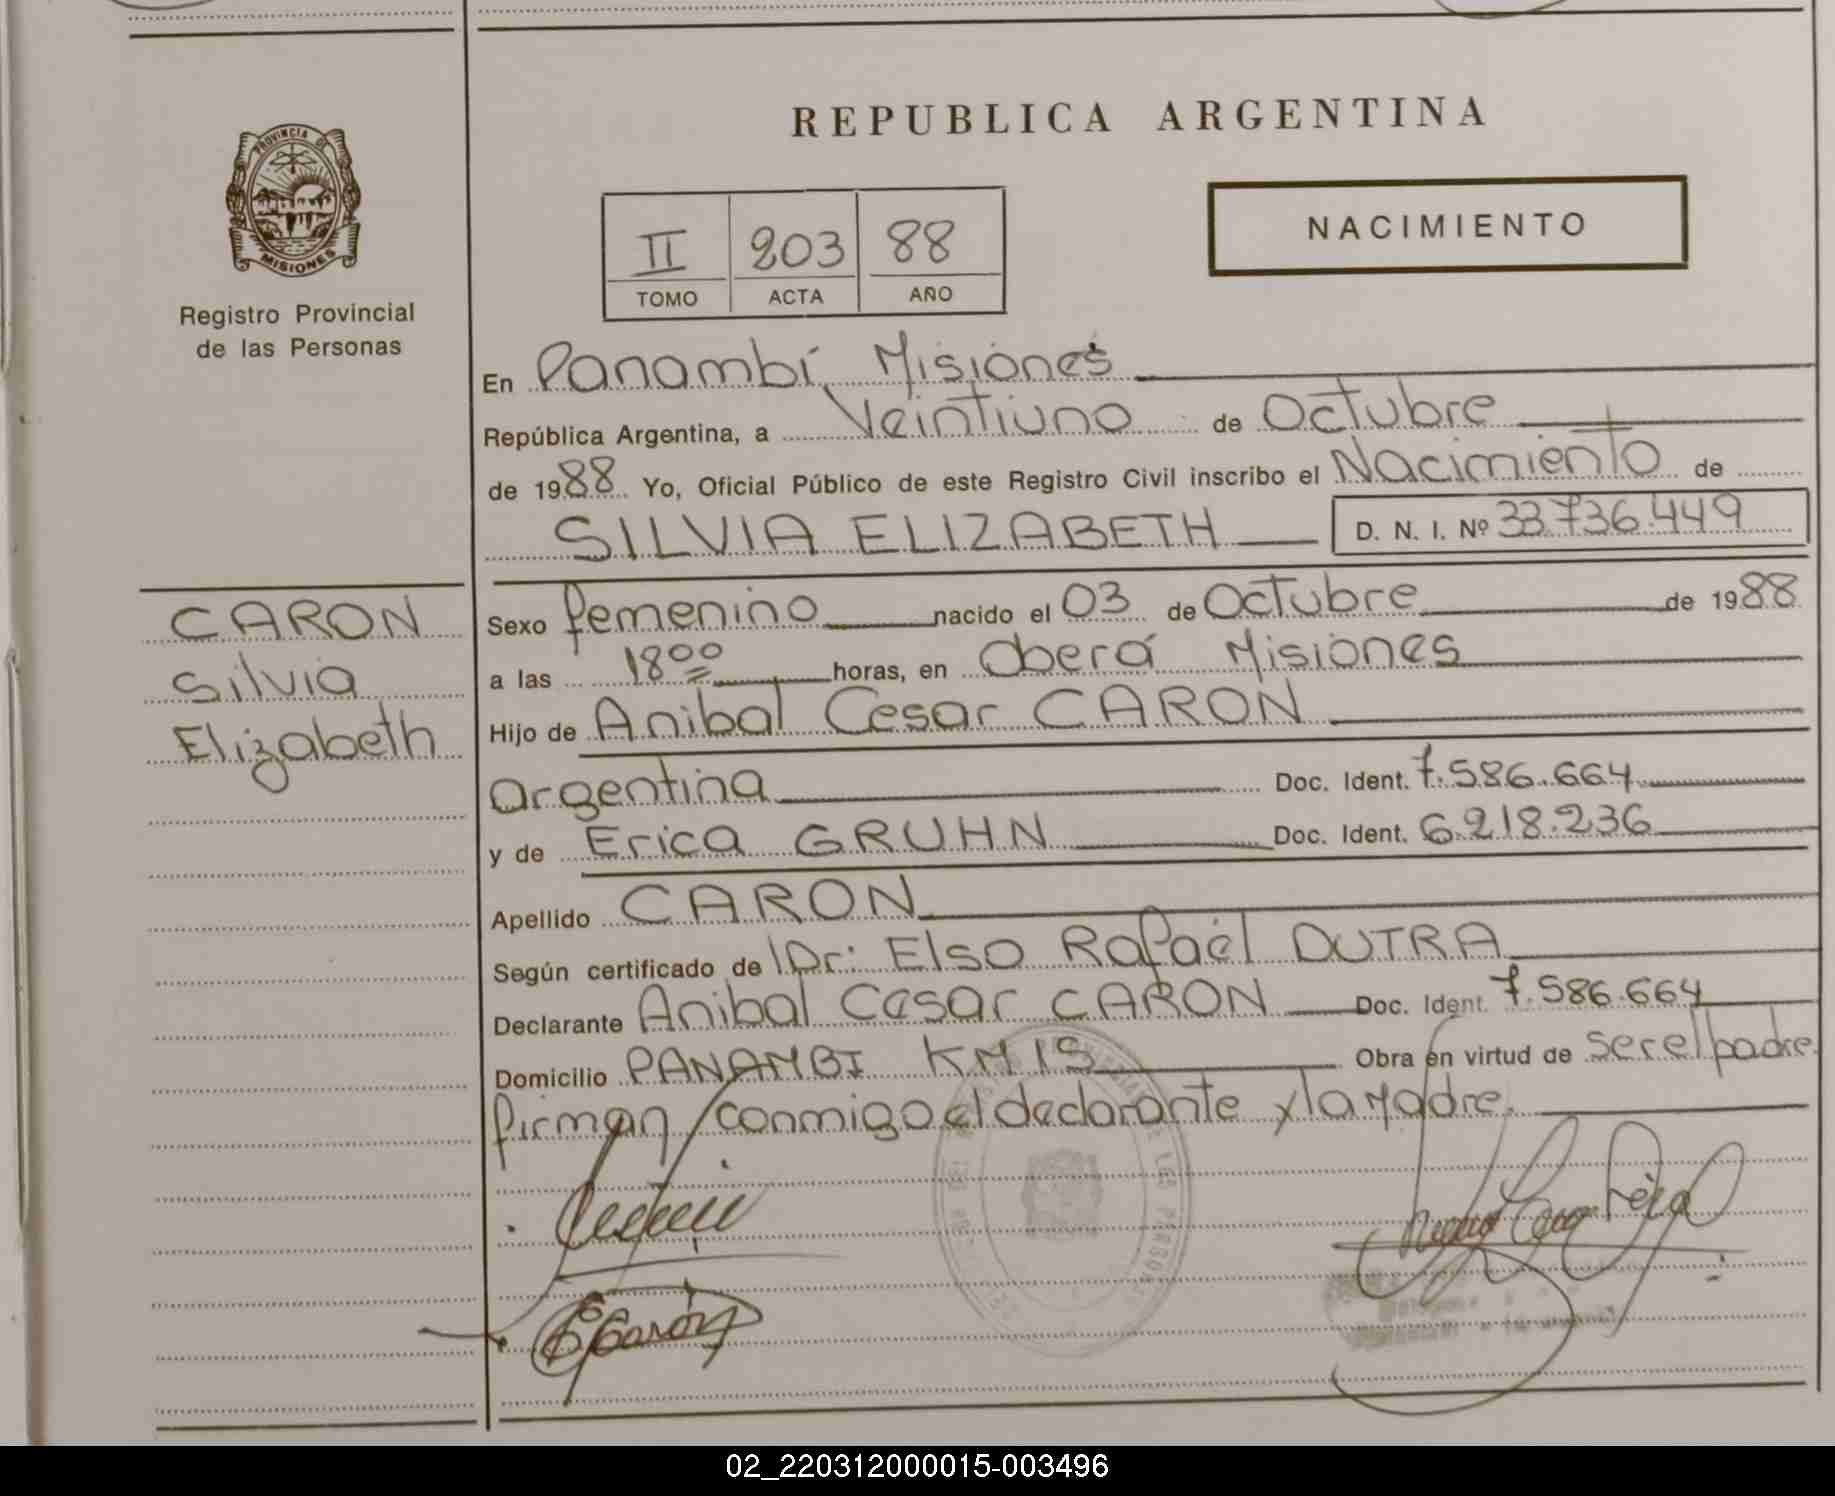 PROVINCIA DE
MISIONES
Registro Provincial
de las Personas
REPUBLICA ARGENTINA
II 203 88
TOMO ACTA AÑO
NACIMIENTO
En Panambí Misiones
República Argentina, a Veintiuno de Octubre
de 1988 Yo, Oficial Público de este Registro Civil inscribo el Nacimiento de
SILVIA ELIZABETH D. N. I. Nº 33.736.449
CARON
Silvia
Elizabeth
Sexo femenino nacido el 03 de Octubre de 1988
a las 18ºº horas, en Oberá Misiones
Hijo de Anibal Cesar CARON
argentina Doc. Ident. 7.586.664
y de Erica GRUHN Doc. Ident. 6.218.236
Apellido CARON
Según certificado de Dr: Elso Rafael DUTRA
Declarante Anibal Cesar CARON Doc. Ident. 7.586.664
Domicilio PANAMBI KM 15 Obra en virtud de ser el padre.
firman conmigo el declarante y la Madre.
02_220312000015-003496